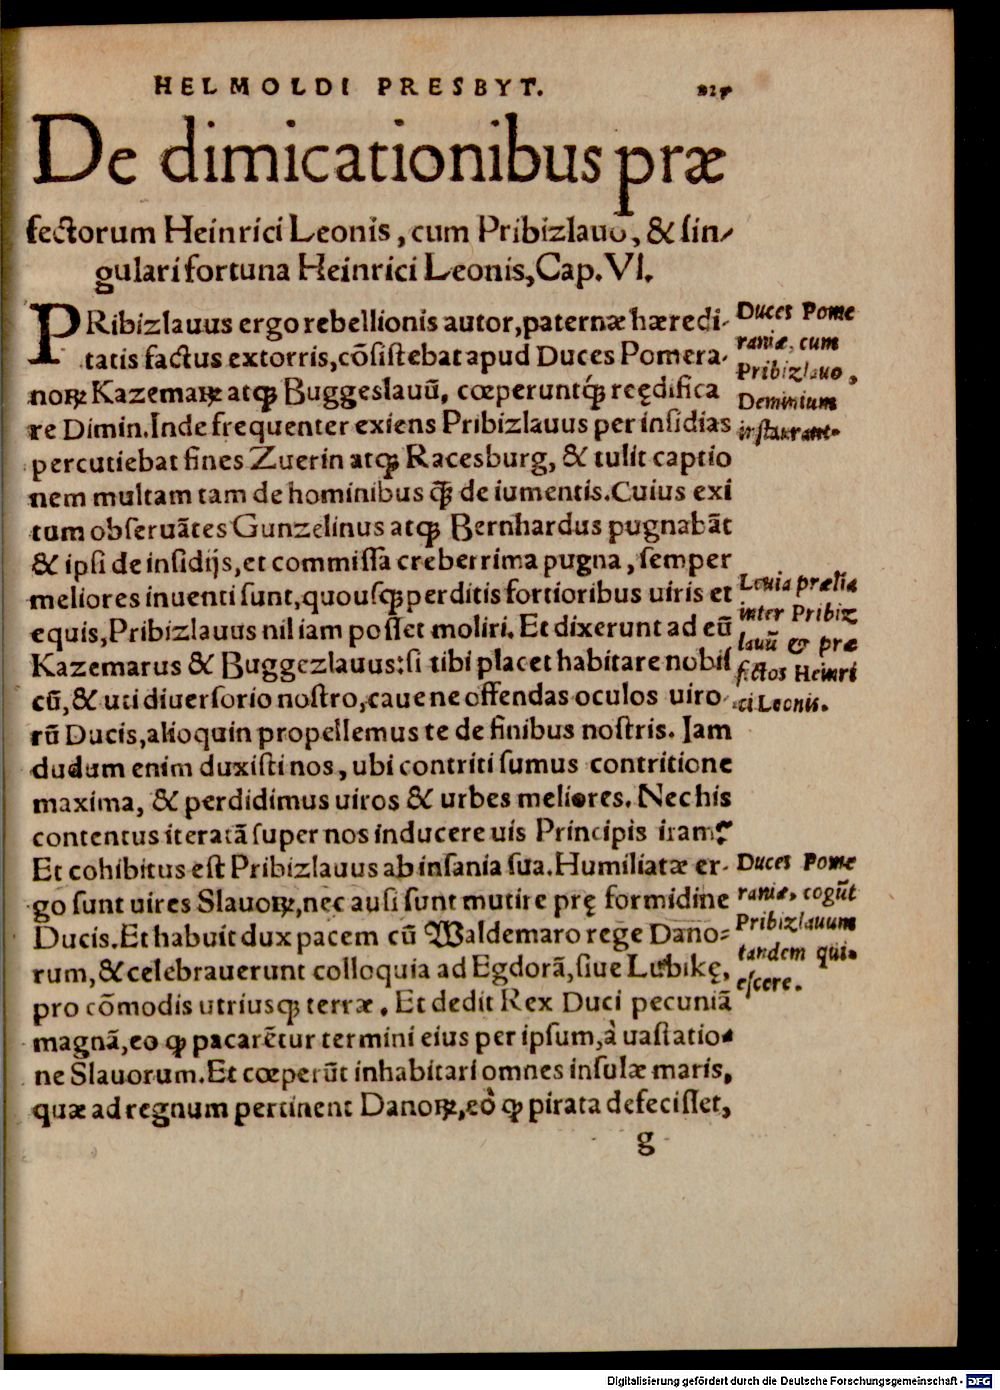 HELMOLDI PRESBYT.
De dimicationibus præ
fectorum Heinrici Leonis, cum Pribizlauo, & sin⸗
gulari fortuna Heinrici Leonis, Cap. VI.
PRibizlauus ergo rebellionis autor, paternæ hæredi-
tatis factus extorris, cõsistebat apud Duces Pomera-
noꝝ Kazemaꝝ atqꝫ Buggeslauũ, cœperuntqꝫ́ reędifica
re Dimin. Inde frequenter exiens Pribizlauus per insidias
percutiebat fines Zuerin atqꝫ Racesburg, & tulit captio
nem multam tam de hominibus q̃ꝫ de iumentis. Cuius exi
tum obseruãtes Gunzelinus atqꝫ Bernhardus pugnabãt
& ipsi de insidijs, et commissa creberrima pugna, semper
meliores inuenti sunt, quousqꝫ perditis fortioribus uiris et
equis, Pribizlauus nil iam posset moliri. Et dixerunt ad eũ
Kazemarus & Buggezlauus: si tibi placet habitare nobis
cũ, & uti diuersorio nostro, caue ne offendas oculos uiro-
rũ Ducis, alioquin propellemus te de finibus nostris. Iam
dudum enim duxisti nos, ubi contriti sumus contritione
maxima, & perdidimus uiros & urbes meliores. Nec his
contentus iteratã super nos inducere uis Principis iram?
Et cohibitus est Pribizlauus ab insania sua. Humiliatæ er-
go sunt uires Slauoꝝ, nec ausi sunt mutire prę formidine
Ducis. Et habuit dux pacem cũ Waldemaro rege Dano⸗
rum, & celebrauerunt colloquia ad Egdorã, siue Lubikę,
pro cõmodis utriusqꝫ terræ. Et dedit Rex Duci pecuniã
magnã, eo ꝙ pacarẽtur termini eius per ipsum, à uastatio-
ne Slauorum. Et cœperũt inhabitari omnes insulæ maris,
quæ ad regnum pertinent Danoꝝ, eò ꝙ pirata defecisset,
g
Duces Pome
raniæ, cum
Pribizlauo,
Demmium
instaurant.
Leuia prælia
inter Pribiz
lauũ & præ
fectos Heinri
ci Leonis.
Duces Pome
raniæ, cogũt
Pribizlauum
tandem qui-
escere.
Digitalisierung gefördert durch die Deutsche Forschungsgemeinschaft - DFG